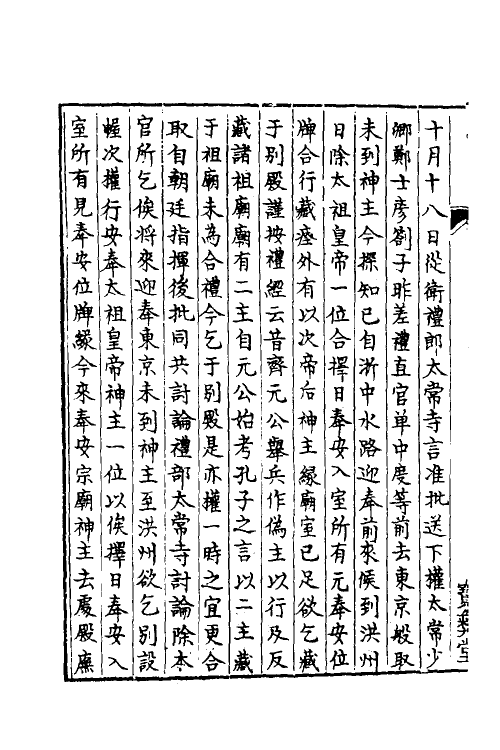 十月十八日從衛禮郎太常寺言准批送下權太常少
卿鄭士彥劄子昨差禮直官单中度等前去東京般取
未到神主今探知已自浙中水路迎奉前來俟到洪州
日除太祖皇帝一位合擇日奉安入室所有元奉安位
牌合行藏瘞外有以次帝后神主緣廟室已足欲乞藏
于别殿謹按禮經云昔齊元公舉兵作偽主以行及反
藏諸祖廟廟有二主自元公始考孔子之言以二主藏
于祖廟未為合禮今乞于别殿是亦權一時之宜更合
取自朝廷指揮後批同共討論禮部太常寺討論除本
官所乞俟將來迎奉東京未到神主至洪州欲乞别設
幄次權行安奉太祖皇帝神主一位以俟擇日奉安入
室所有見奉安位牌緣今來奉安宗廟神主去處殿廡